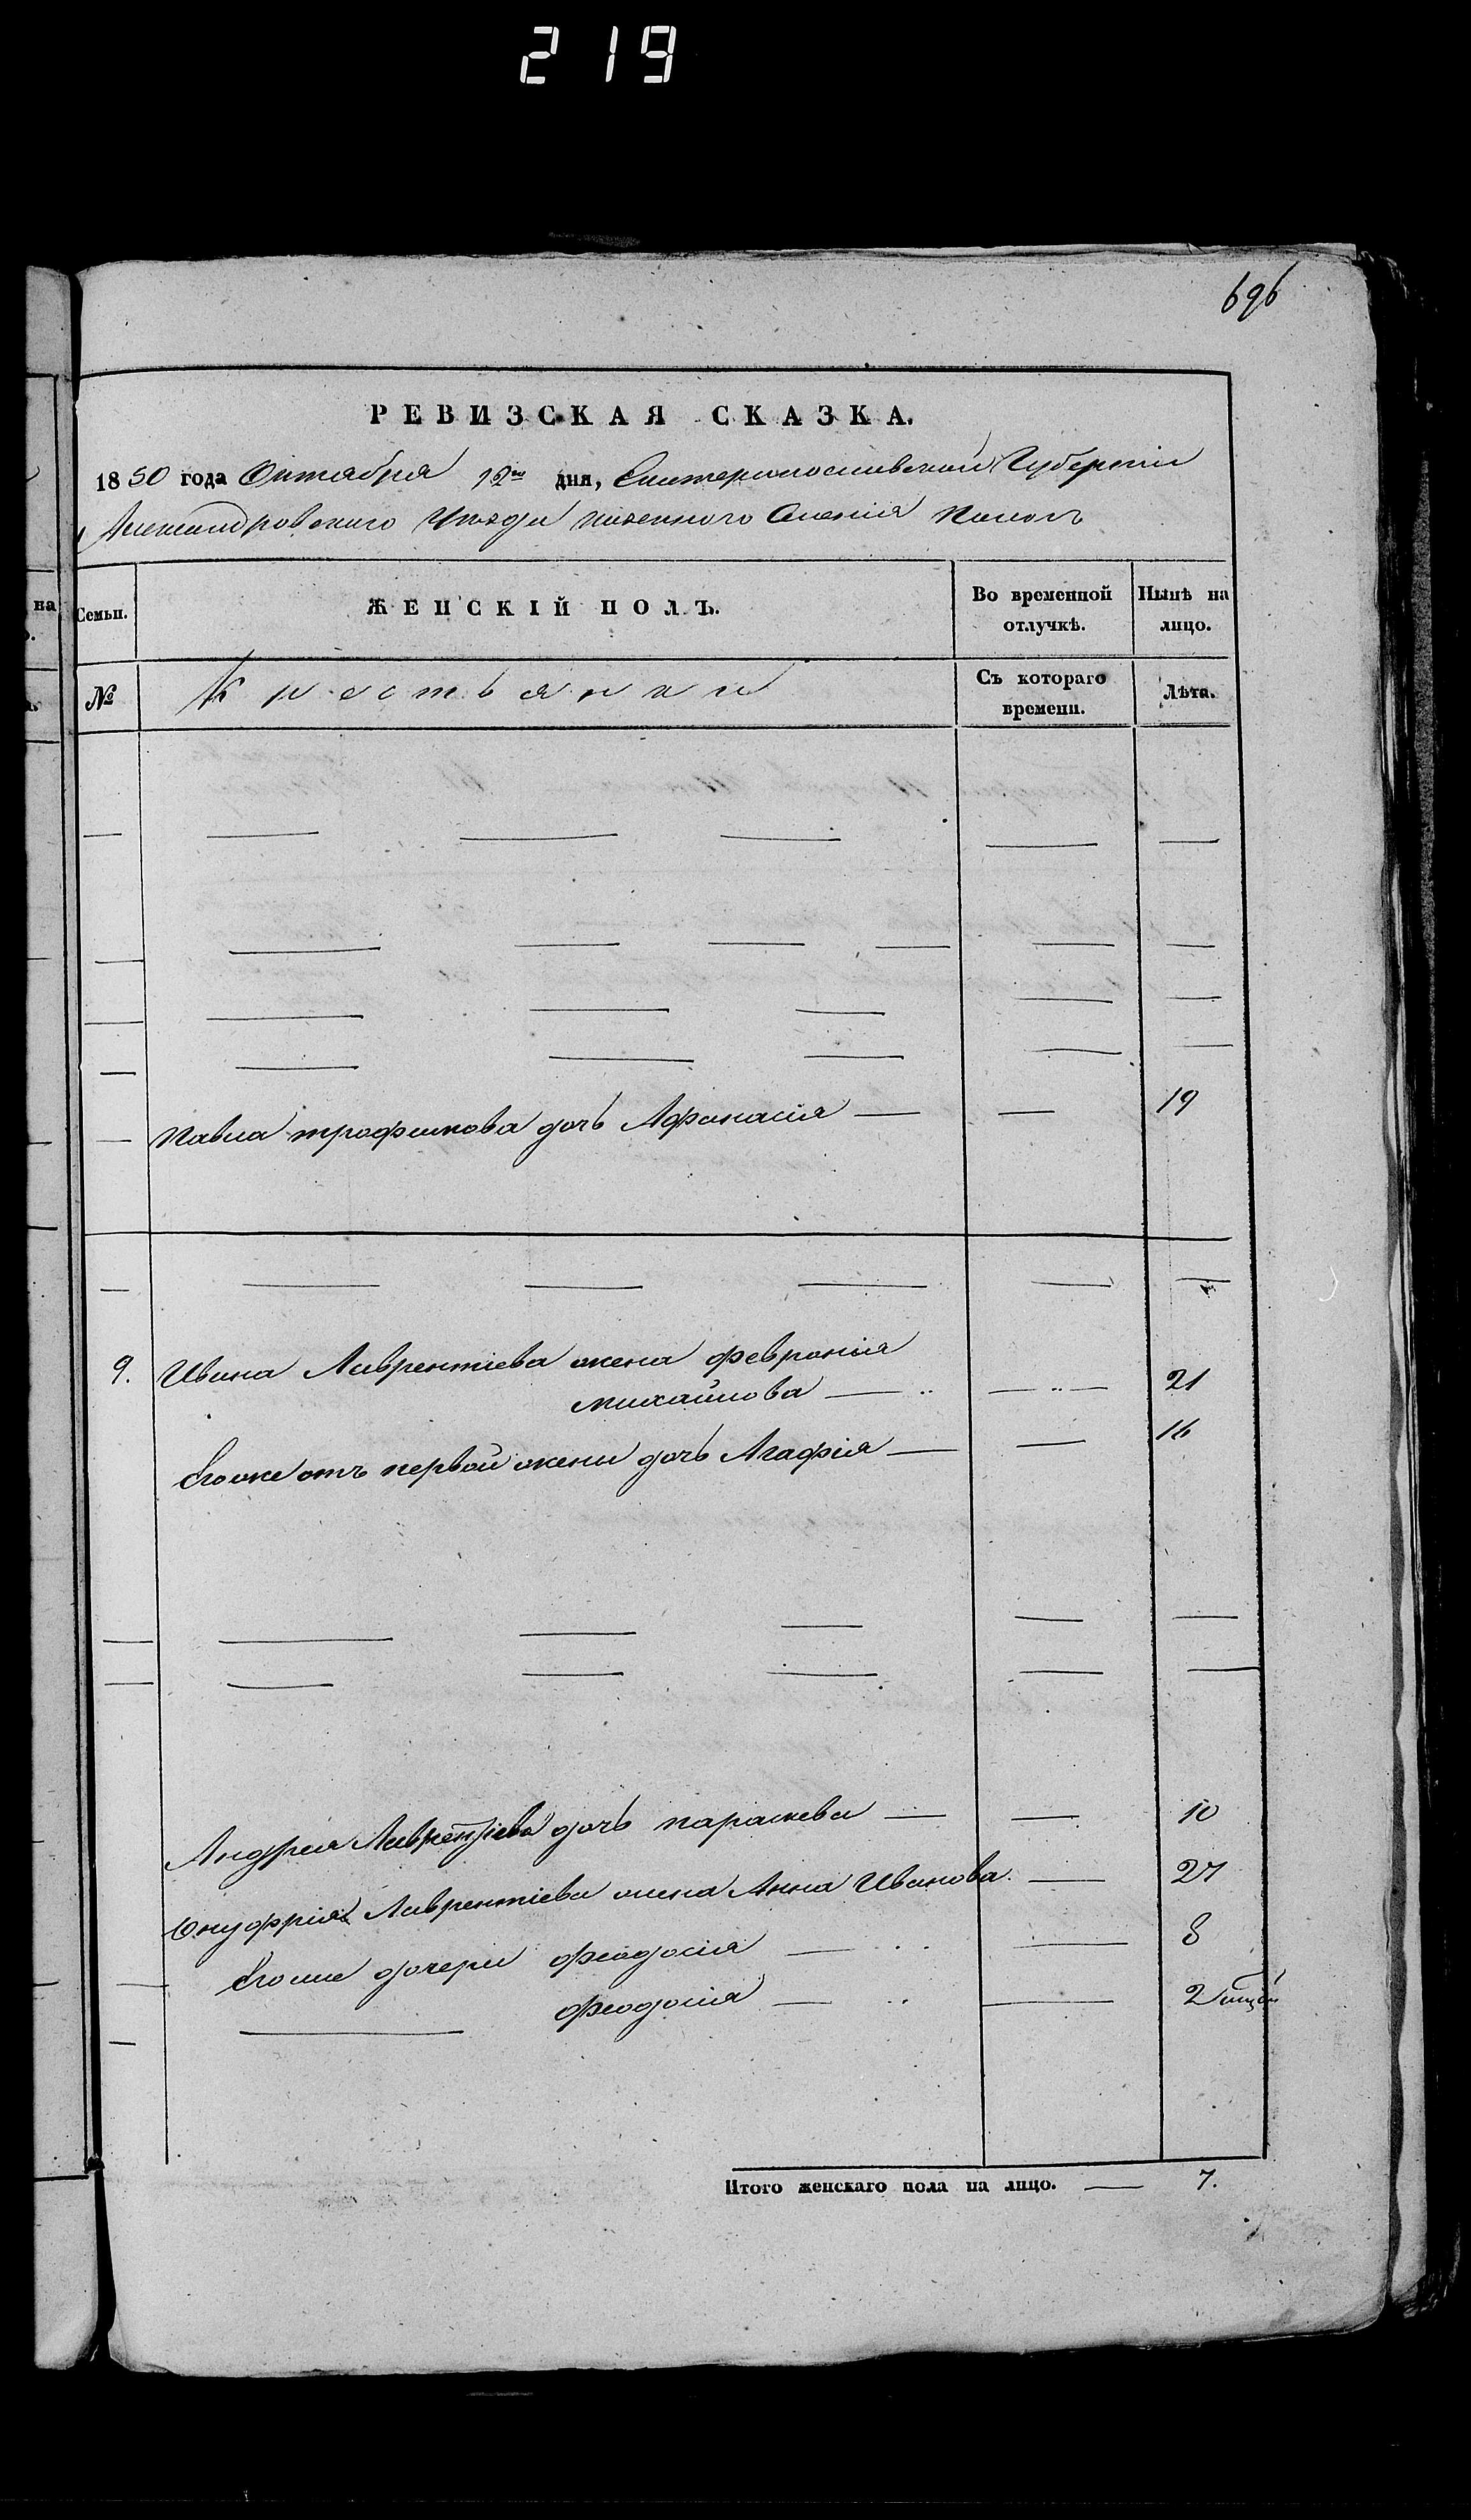 219
696
РЕВИЗСКАЯ СКАЗКА.
1850 года Октября 12го дня, Екатеринославской Губернии
Александровского Уезда казенного Селения
Семьи.
ЖЕНСКІЙ ПОЛЪ.
Во временной отлучкѣ.
Нынѣ на лицо.
№
Крестьянки
Съ котораго времени.
Лѣта.
Павла трофимова дочь Афанасія — — 19
9. Ивана Лаврентіева жена феврониія
михайлова — — 21
Его же отъ первой жены дочь Агафія — — 16
Андрея Лаврентіева дочь параскева — — 10
Онуфрія Лаврентіева жена Анна Иванова — 27
Его же дочери феодосія — — 8
феодосія — — 2
Итого женскаго пола на лицо. — 7.